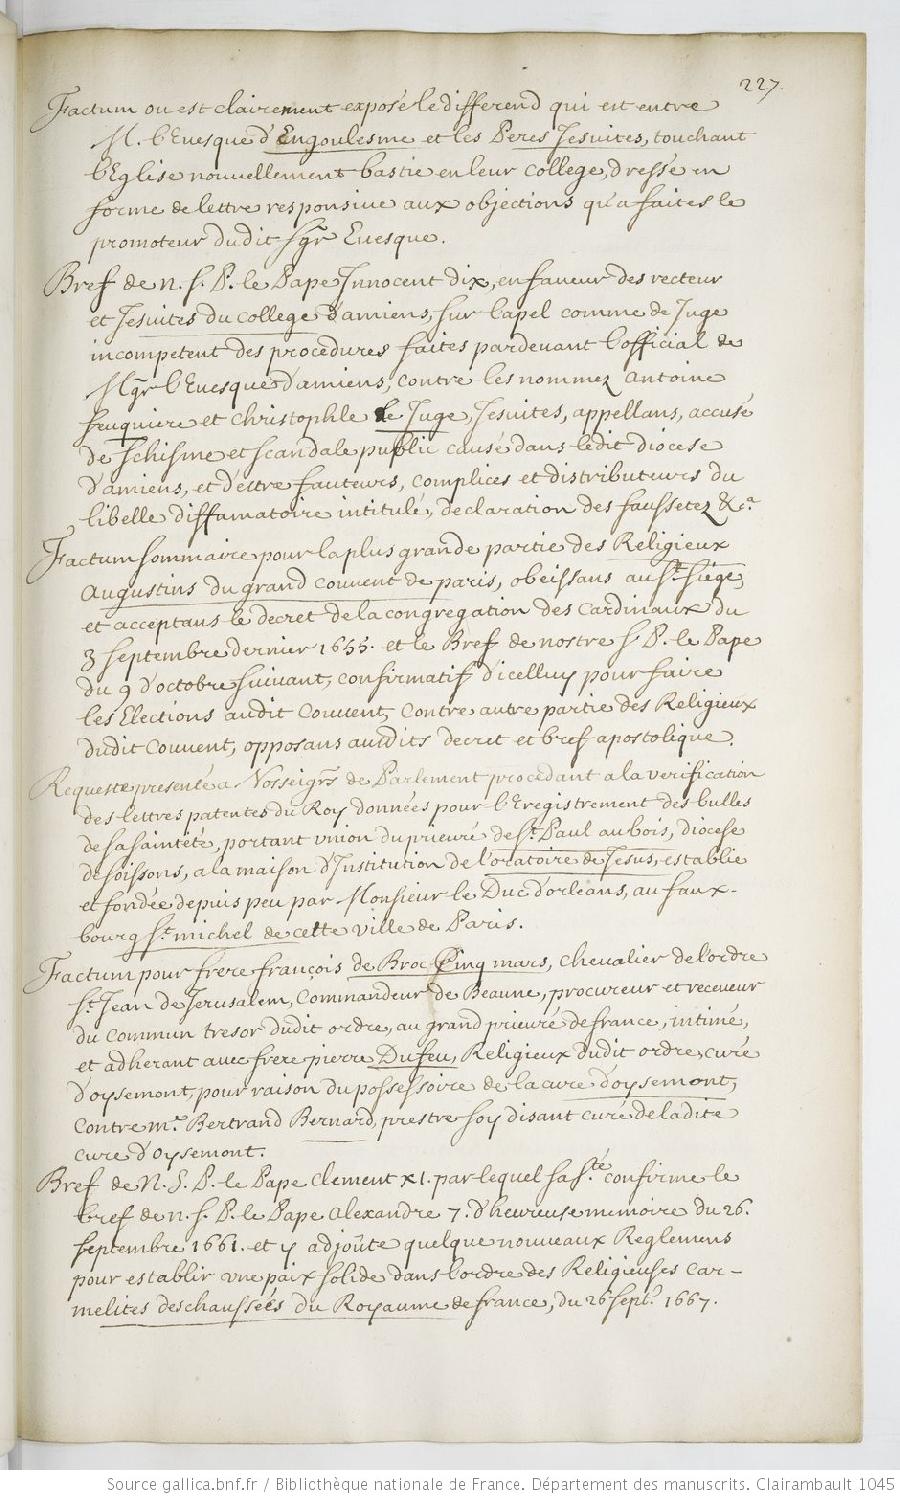 227.
Factum ou est clairement exposé le differend qui est entre
M. l'Euesque d'Engoulesme et les Peres Jesuites, touchant
l'Eglise nouuellement bastie en leur college, dressé en
forme de lettre responsiue aux objections qu'a faites le
promoteur dudit Sgr Euesque.
Bref de n. S. P. le Pape Innocent dix, en faueur des recteur
et Jesuites du college d'amiens, sur l'apel comme de Juge
incompetent des procedures faites pardeuant l'official de
Mgr l'Euesque d'amiens, contre les nommez Antoine
feuquiere et Christophle le Juge, Jesuites, appellans, accusé
de schisme et scandale public causé dans ledit diocese
d'amiens, et d'estre fauteurs, complices et distributeurs du
libelle diffamatoire intitulé, declaration des faussetez &.a
Factum sommaire pour la plus grande partie des Religieux
Augustins du grand couuent de paris, obeissans au St. siége,
et acceptans le decret de la congregation des Cardinaux du
3 septembre dernier 1655. et le Bref de nostre S. P. le Pape
du 9 d'octobre suiuant, confirmatif d'icelluy pour faire
les Elections audit Conuent, Contre autre partie des Religieux
dudit Couuent, opposans ausdits decret et bref apostolique.
Requeste presenté a Nosseigrs de Parlement procedant a la verification
des lettres patentes du Roy données pour l'Eregistrement des bulles
de sa sainteté, portant vnion du prieuré de St. Paul au bois, diocese
de soissons, a la maison d'Institution de l'oratoire de Jesus, establie
et fondée depuis peu par Monsieur le Duc d'orleans, au faux-
bourg St. michel de cette ville de Paris.
Factum pour frere françois de Broc Cinq mars, chevalier de l'ordre
St. Jean de Jerusalem, Commandeur de Beaune, procureur et receueur
du commun tresor dudit ordre, au grand prieuré de france, intimé,
et adherant auec frere pierre Dufeu, Religieux dudit ordre, curé
d'oysemont, pour raison du possessoire de la cure d'oysemont,
contre me. Bertrand Bernard, prestre soy disant curé de ladite
cure d'oysemont.
Bref de N. S. P. le Pape Clement XI. par lequel sa Sté. confirme le
bref de n. S. P. le Pape Alexandre 7. d'heureuse memoire du 26.
septembre 1661. et y adjoûte quelque nouueaux Reglemens
pour establir vne paix solide dans l'ordre des Religieuses Car-
melites deschaussées du Royaume de france, du 26 sept. 1667.
Source gallica.bnf.fr / Bibliothèque nationale de France. Département des manuscrits. Clairambault 1045